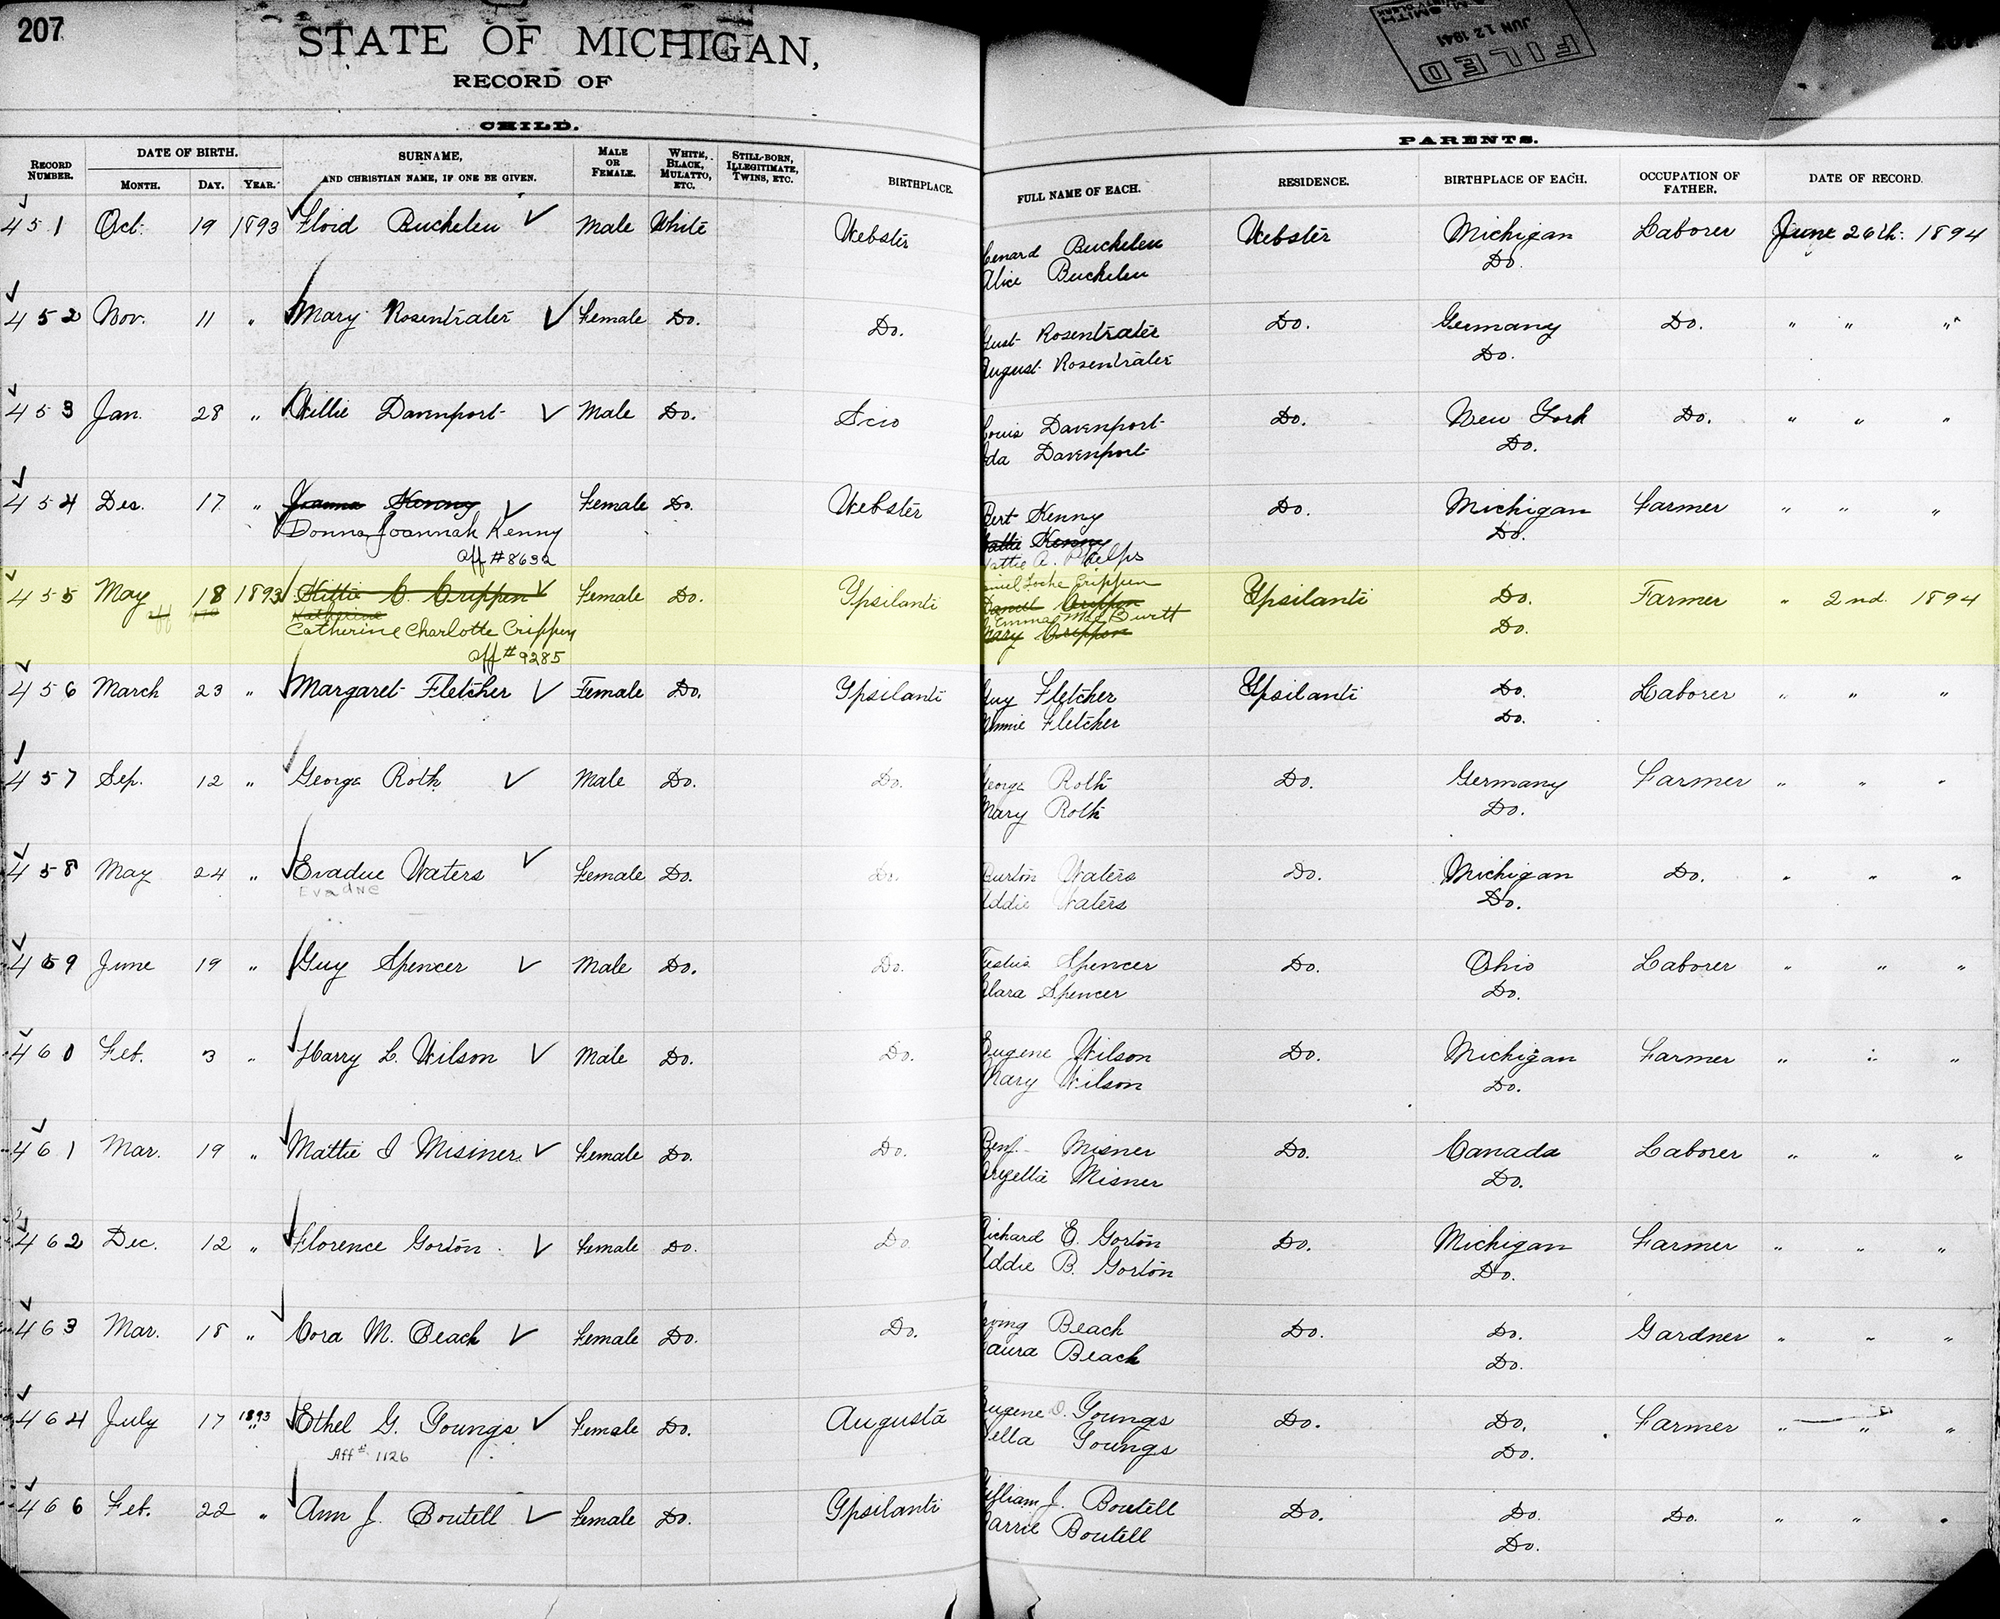 207
STATE OF MICHIGAN,
RECORD OF
CHILD.
PARENTS.
FILED
JUN 12 1941
RECORD NUMBER.
DATE OF BIRTH.
MONTH. DAY. YEAR.
SURNAME,
AND CHRISTIAN NAME, IF ONE BE GIVEN.
MALE OR FEMALE.
WHITE, BLACK, MULATTO, ETC.
STILL-BORN, ILLEGITIMATE, TWINS, ETC.
BIRTHPLACE.
FULL NAME OF EACH.
RESIDENCE.
BIRTHPLACE OF EACH.
OCCUPATION OF FATHER,
DATE OF RECORD.
451 Oct. 19 1893 Floid Buchelen Male White Webster enard Buchelen Webster Michigan Laborer June 26th. 1894
Alice Buchelen Do.
452 Nov. 11 " Mary Rosentrater Female Do. Do. Gust Rosentrater Do. Germany Do. " " "
August Rosentrater Do.
453 Jan. 28 " Willie Davenport Male Do. Scio Louis Davenport Do. New York Do. " " "
da Davenport Do.
454 Dec. 17 " Joanna Kenny Female Do. Webster Bert Kenny Do. Michigan Farmer " " "
Donna Joannah Kenny attie Kenny Do.
Aff #8632 attie A. Phelps
455 May 18 1893 Kittie C. Crippen Female Do. Ypsilanti niel Locke Crippen Ypsilanti Do. Farmer " 2nd. 1894
Katherine Daniel Crippen
Catherine Charlotte Crippen Emma Mae Burtt Do.
Aff #9285 Mary Crippen
456 March 23 " Margaret Fletcher Female Do. Ypsilanti Guy Fletcher Ypsilanti Do. Laborer " " "
nnie Fletcher Do.
457 Sep. 12 " George Roth Male Do. Do. George Roth Do. Germany Farmer " " "
Mary Roth Do.
458 May 24 " Evadue Waters Female Do. Do. Burton Waters Do. Michigan Do. " " "
Evadne Addie Waters Do.
459 June 19 " Guy Spencer Male Do. Do. Spencer Do. Ohio Laborer " " "
Clara Spencer Do.
460 Feb. 3 " Harry L. Wilson Male Do. Do. Eugene Wilson Do. Michigan Farmer " " "
Mary Wilson Do.
461 Mar. 19 " Mattie I Misiner Female Do. Do. Benj. Misner Do. Canada Laborer " " "
Misner Do.
462 Dec. 12 " Florence Gorton Female Do. Do. Richard E. Gorton Do. Michigan Farmer " " "
Addie B. Gorton Do.
463 Mar. 18 " Cora M. Beach Female Do. Do. rving Beach Do. Do. Gardner " " "
Laura Beach Do.
464 July 17 1893 " Ethel G. Youngs Female Do. Augusta Eugene D. Youngs Do. Do. Farmer " " "
Aff # 1126 ella Youngs Do.
466 Feb. 22 " Ann J. Boutell Female Do. Ypsilanti William J. Boutell Do. Do. Do. " " "
Carrie Boutell Do.